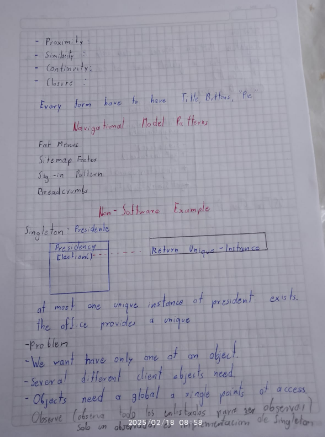 - Proximity.
- Similarity
- Continuity.
- Closure
Every form have to have Title, Buttons,
Navigational Model Patterns
Fat Menus
Sitemap Footer
Sign-in Pattern
Breadcrumbs
Non-Software Example
Singleton: Presidency
Presidency
Election()
Return Unique-Instance
at most one unique instance of president exists.
the office provides a unique
-Problem
-We want have only one of an object.
-Several different client objects need.
-Objects need a global a single points of access
Observe (observa todo los
Solo un
de Singleton
2025/02/18 09:58